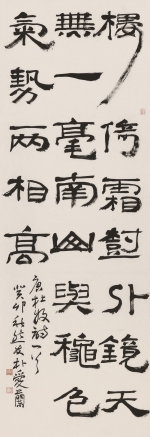 樓倚霜樹外鏡天
無一毫南山與龝色
氣勢兩相高
唐杜牧詩一首
癸卯秋 朴愛蘭